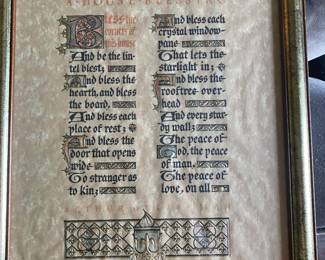 A HOUSE BLESSING
BLESS the
corners of
this house
And be the lin-
tel blest;
And bless the
hearth, and bless
the board,
And bless each
place of rest;
And bless the
door that opens
wide
To stranger as
to kin;
And bless each
crystal window-
pane
That lets the
starlight in;
And bless the
rooftree over-
head
And every stur-
dy wall;
The peace of
God, the peace
of man,
The peace of
love, on all